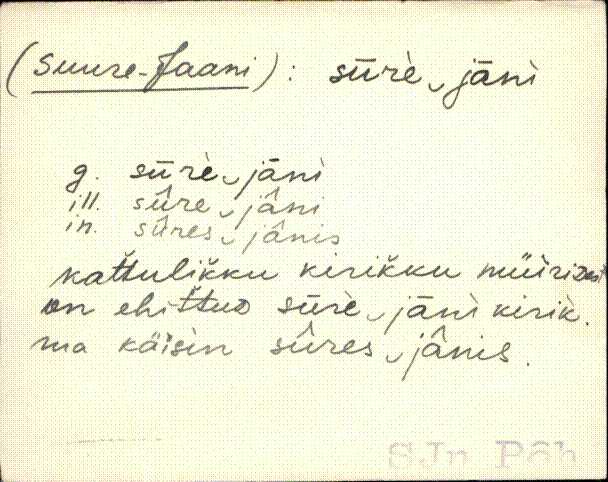 (Suure-Jaani): sūrè‿jānì
g. sūrè‿jānì
ill. sûre‿jâni
in. sûres‿jânis
kat̆tulik̆ku kirik̆ku müìrì
on ehit̆tuᴅ sūrè‿jānì kirìk.
ma käìsìn sûres‿jânis.
SJn Põh